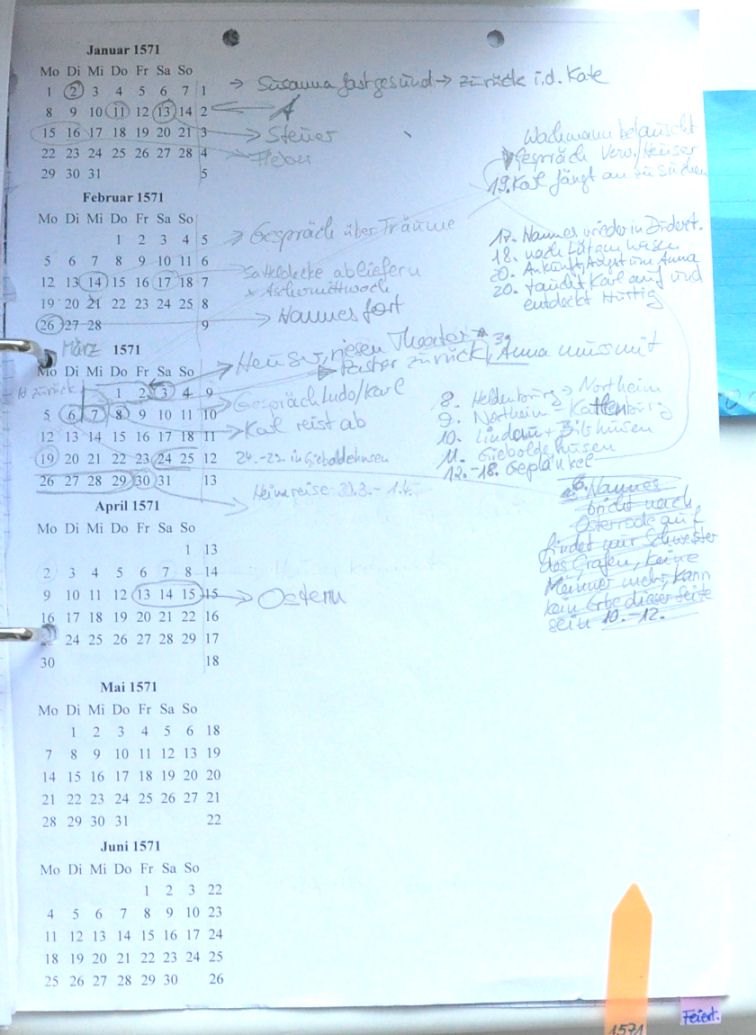 Januar 1571
Mo Di Mi Do Fr Sa So
1 2 3 4 5 6 7 1
→ Susanna fast gesund → zurück i.d. Kate
8 9 10 11 12 13 14 2
15 16 17 18 19 20 21 3
→ Steuer
22 23 24 25 26 27 28 4
→ Fieber
29 30 31 5
Wachmann belauscht
Gespräch Verw./Heuser
19. Karl fängt an zu suchen
Februar 1571
Mo Di Mi Do Fr Sa So
1 2 3 4 5
→ Gespräch über Träume
5 6 7 8 9 10 11 6
12 13 14 15 16 17 18 7
→ Satteldecke abliefern
Aschermittwoch
19 20 21 22 23 24 25 8
26 27 28 9
→ Hannes fort
17. Hannes wieder in
18. nach
20. Ankunft, Angst um Anna
20. taucht Karl auf und
entdeckt Hüttig
März 1571
Mo Di Mi Do Fr Sa So
zurück
1 2 3 4 9
→ Heuser, Theodor
→ Pastor zurück, Anna muss mit
5 6 7 8 9 10 11 10
→ Gespräch Ludo/Karl
→ Karl reist ab
12 13 14 15 16 17 18 11
19 20 21 22 23 24 25 12
in Gieboldehusen
26 27 28 29 30 31 13
Heimreise
8. Heldenburg → Northeim
9. Northeim - Katlenburg
10. Lindau + Bilshausen
11. Gieboldehusen
12.-18. Geplänkel
April 1571
Mo Di Mi Do Fr Sa So
1 13
2 3 4 5 6 7 8 14
9 10 11 12 13 14 15 15
→ Ostern
16 17 18 19 20 21 22 16
24 25 26 27 28 29 17
30 18
Hannes
bricht nach
Osterode auf
findet nur Schwester
des Grafen, keine
Männer mehr, kann
kein Erbe dieser Seite
sein 10.-12.
Mai 1571
Mo Di Mi Do Fr Sa So
1 2 3 4 5 6 18
7 8 9 10 11 12 13 19
14 15 16 17 18 19 20 20
21 22 23 24 25 26 27 21
28 29 30 31 22
Juni 1571
Mo Di Mi Do Fr Sa So
1 2 3 22
4 5 6 7 8 9 10 23
11 12 13 14 15 16 17 24
18 19 20 21 22 23 24 25
25 26 27 28 29 30 26
1571
Feiert.